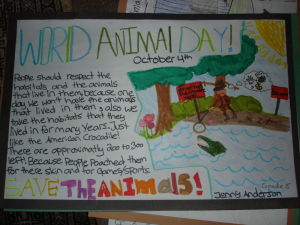 WORLD ANIMAL DAY!
October 4th
People should respect the
habitats and the animals
that live in them, because one
day we won't have the animals
that lived in them & also we
take the habitats that they
lived in for many years. Just
like the American Crocodile!
There are approximatly 200 to 300
left! Because People Poached them
for there skin and for Games/Sports.
SAVE THE ANIMALS!
Grade 5
Jenny Anderson